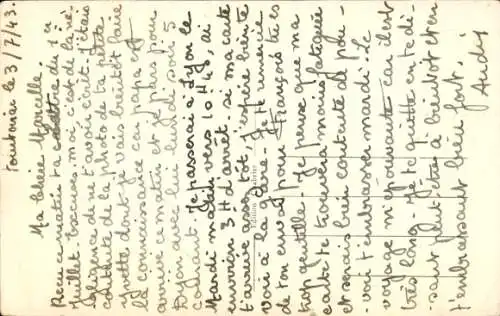 Pontonai le 3/7/43.
Ma chère Marcelle.
Reçu ce matin ta lettre du 1er
Juillet. Excuses-moi, c'est de la né-
gligence de ne t'avoir écrit. J'étais
contente de la photo de ta petite
Yvette dont je vais bientôt faire
la connaissance car papa est
arrivé ce matin et je pars pour
Dijon avec lui lundi soir 5
courant. Je passerai à Lyon le
Mardi matin vers 10H45, ai
environ 3H d'arrêt. Si ma carte
t'arrive assez tôt, j'espère bien te
voir à la gare. Je te remercie
de ton envoi pour François tu es
trop gentille. Je pense que ma
carte te trouvera mais fatiguée
et serais bien contente de pou-
voir t'embrasser mardi. Le
voyage m'épouvante car il est
très long. Je te quitte en te di-
sant peut-être à bientôt et en
t'embrassant bien fort.
Andrée
Edition